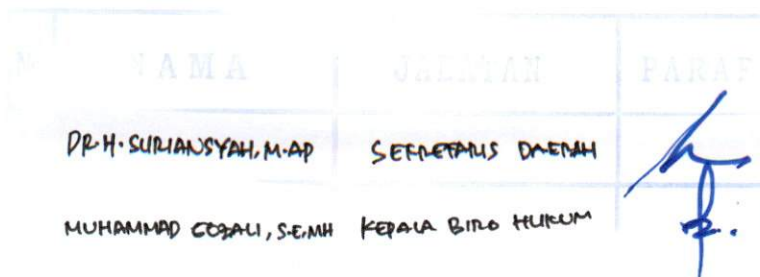 NAMA JABATAN PARAF
DR.H. SURIANSYAH, M.AP SEKRETARIS DAERAH
MUHAMMAD GOZALI, S.E, MH KEPALA BIRO HUKUM